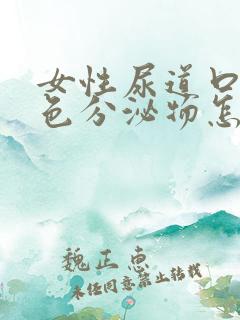 女性尿道口
色分泌物怎
魏正惠
未经同意禁止转载